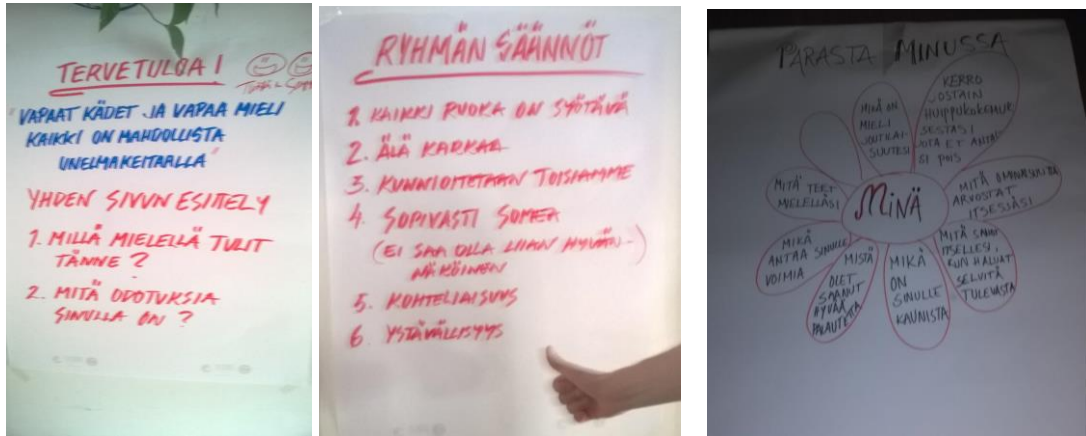 TERVETULOA!
"VAPAAT KÄDET JA VAPAA MIELI
KAIKKI ON MAHDOLLISTA
UNELMAKEITAALLA"
YHDEN SIVUN ESITTELY
1. MILLÄ MIELELLÄ TULIT
TÄNNE?
2. MITÄ ODOTUKSIA
SINULLA ON?
RYHMÄN SÄÄNNÖT
1. KAIKKI RUOKA ON SYÖTÄVÄ
2. ÄLÄ KARKAA
3. KUNNIOITETAAN TOISIAMME
4. SOPIVASTI SOMEA
(EI SAA OLLA LIIAN HYVÄN-
NÄKÖINEN)
5. KOHTELIAISUUS
6. YSTÄVÄLLISYYS
PARASTA MINUSSA
MINÄ
KERRO
JOSTAIN
HUIPPUKOKEMUK
SESTASI
JOTA ET ANTAI
SI POIS
MITÄ OMINAISUUTTA
ARVOSTAT
ITSESSÄSI
MITÄ SANOT
ITSELLESI,
KUN HALUAT
SELVITÄ
TULEVASTA
MIKÄ
ON
SINULLE
KAUNISTA
MISTÄ
OLET
SAANUT
HYVÄÄ
PALAUTETTA
MIKÄ
ANTAA SINULLE
VOIMIA
MITÄ TEET
MIELELLÄSI
MIKÄ ON
MIELI